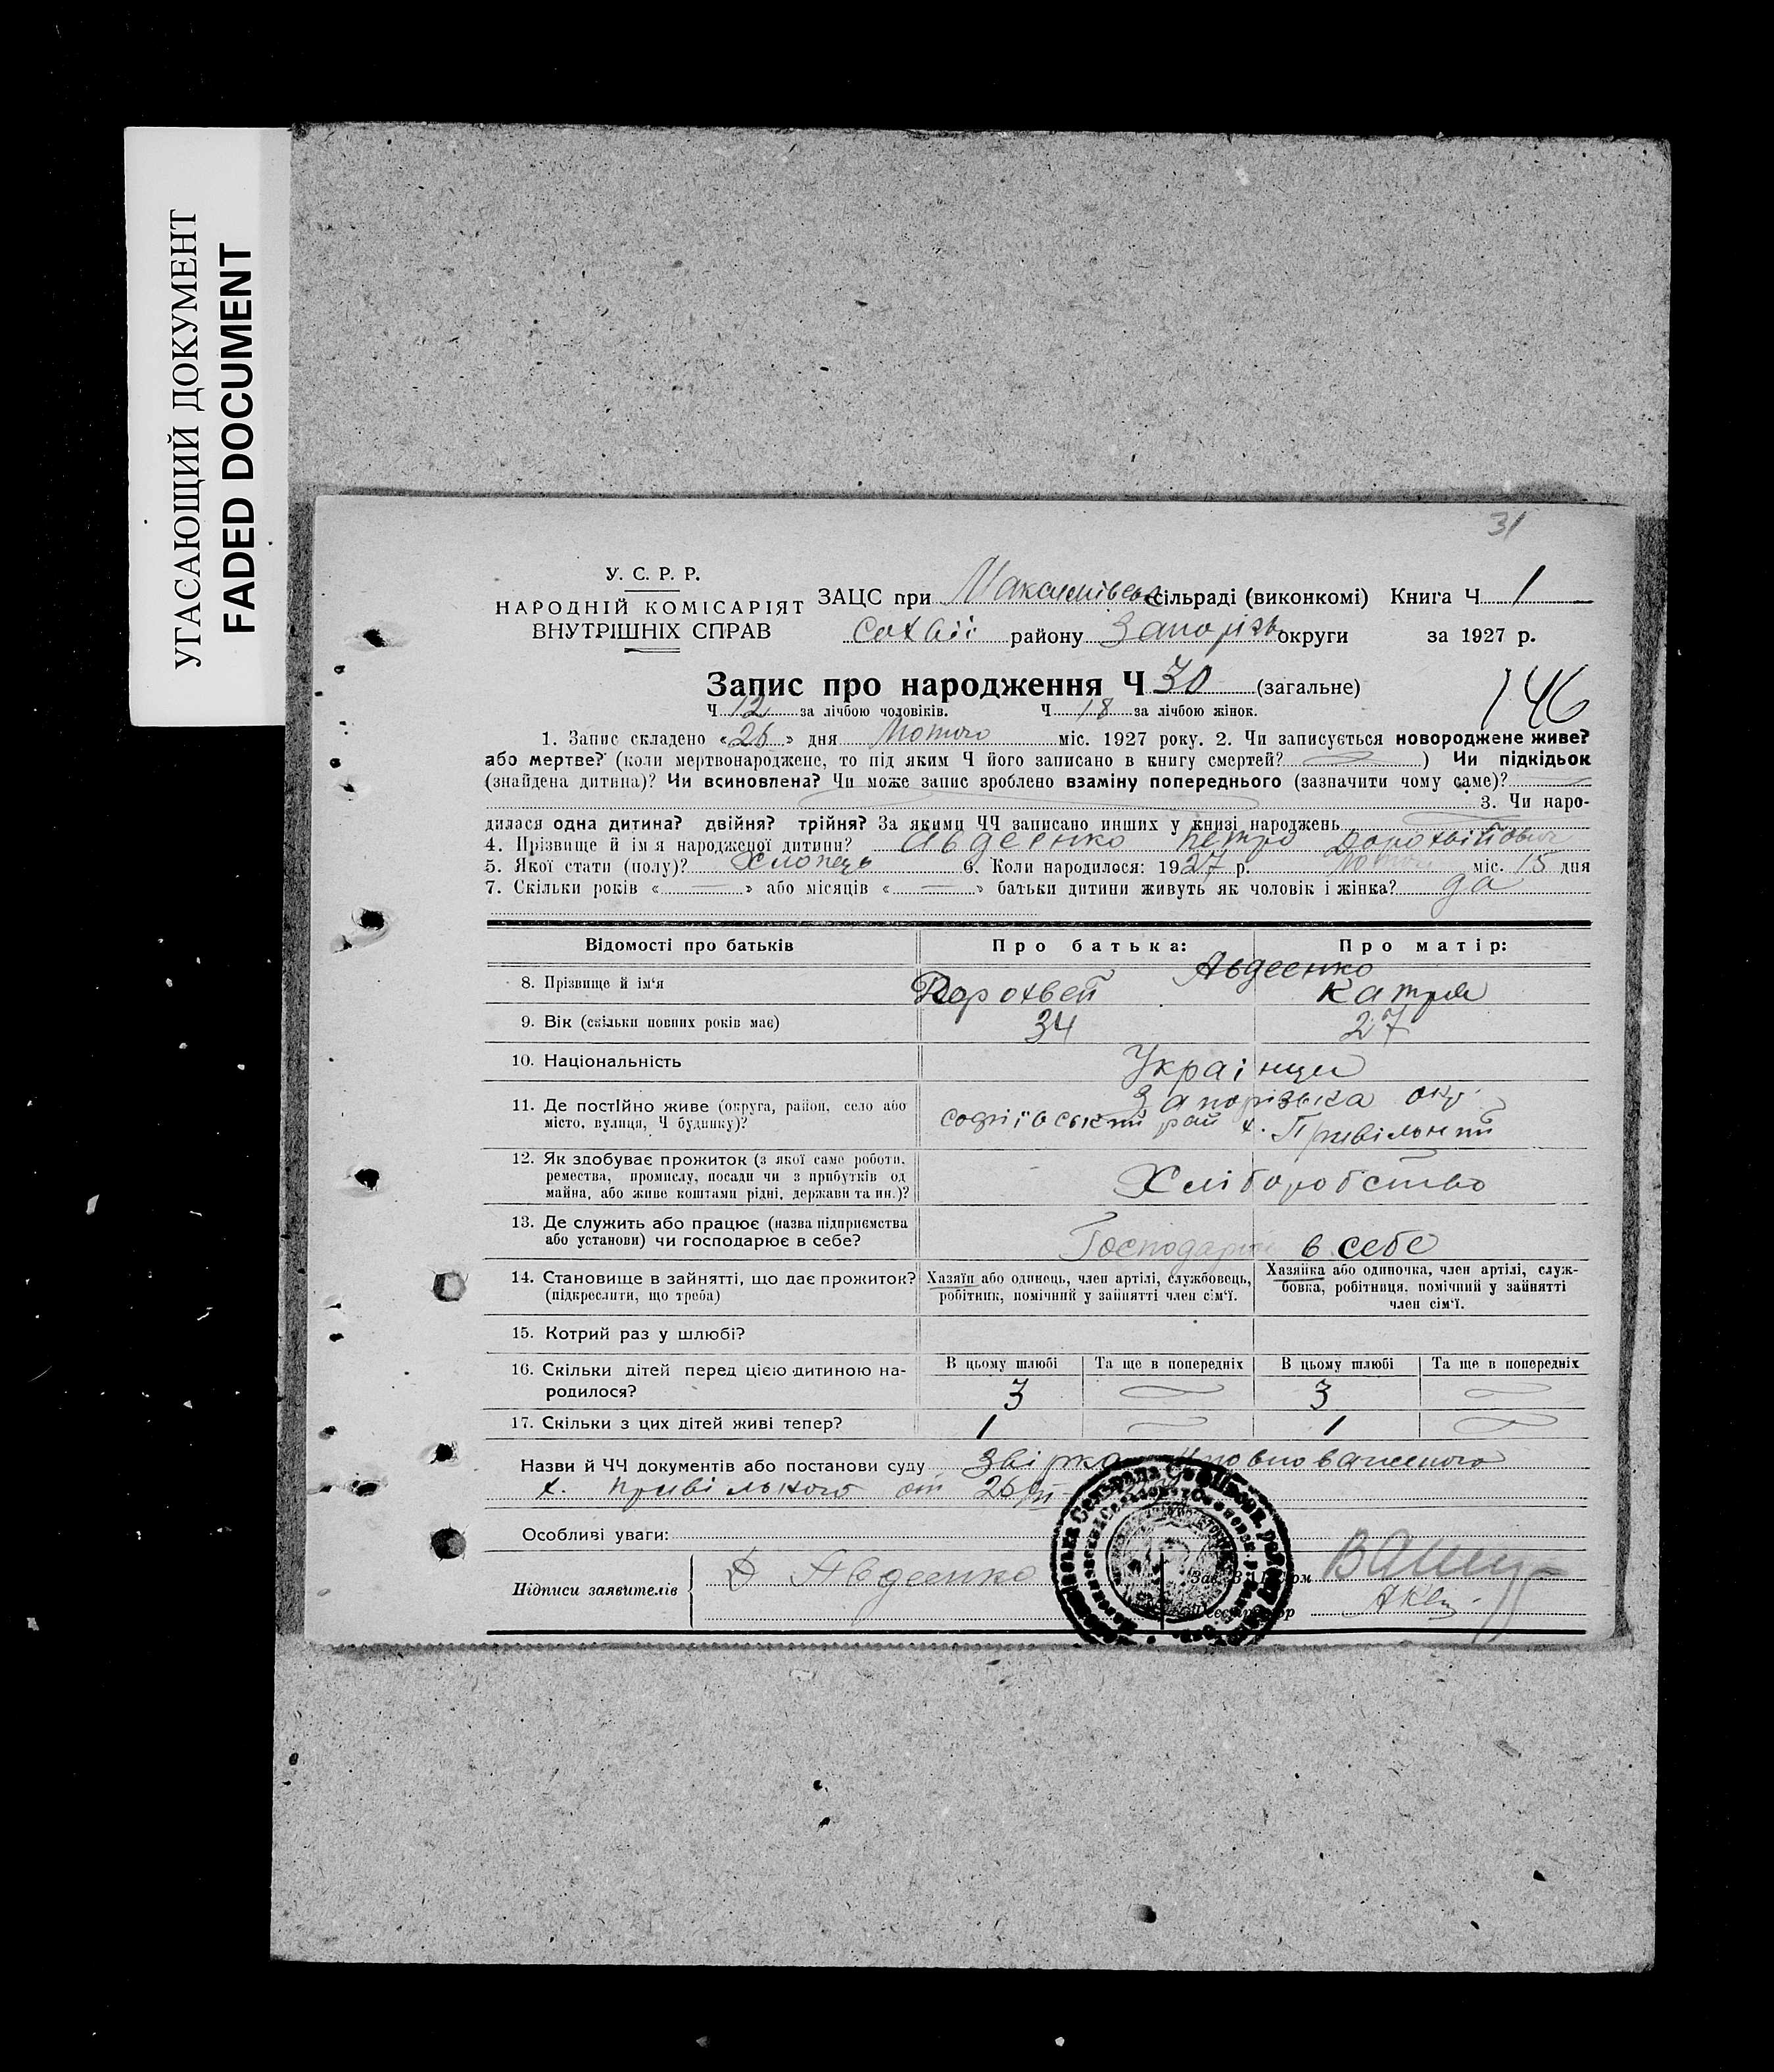 УГАСАЮЩИЙ ДОКУМЕНТ
FADED DOCUMENT
31
У. С. Р. Р.
НАРОДНІЙ КОМІСАРІЯТ
ВНУТРІШНІХ СПРАВ
ЗАЦС при сільраді (виконкомі) Книга Ч 1
району Запорізь округи за 1927 р.
Запис про народження Ч 30 (загальне)
146
Ч 12 за лічбою чоловіків. Ч 18 за лічбою жінок.
1. Запис складено « 26 » дня Лютого міс. 1927 року. 2. Чи записується новороджене живе?
або мертве? (коли мертвонароджене, то під яким Ч його записано в книгу смертей? ) Чи підкідьок
(знайдена дитина)? Чи всиновлена? Чи може запис зроблено взаміну попереднього (зазначити чому саме)?
3. Чи наро-
дилася одна дитина? двійня? трійня? За якими ЧЧ записано инших у книзі народжень
4. Прізвище й ім'я народженої дитини? Авдеенко Петро Дорохвійович
5. Якої стати (полу)? Хлопець 6. Коли народилося: 1927 р. Лютого міс. 15 дня
7. Скільки років « — » або місяців « — » батьки дитини живуть як чоловік і жінка? да
Відомості про батьків Про батька: Про матір:
Авдеенко
8. Прізвище й ім'я Дорохвей Катря
9. Вік (скільки повних років має) 34 27
10. Національність Українци
11. Де постійно живе (округа, район, село або Запорізька окр.
місто, вулиця, Ч будинку)? софіівський рай х. Привільний
12. Як здобуває прожиток (з якої саме роботи,
ремества, промислу, посади чи з прибутків од
майна, або живе коштами рідні, держави та ин.)? Хліборобство
13. Де служить або працює (назва підприємства
або установи) чи господарює в себе? Господарює в себе
14. Становище в зайнятті, що дає прожиток?
(підкреслити, що треба)
Хазяїн або одинець, член артілі, службовець,
робітник, помічний у зайнятті член сім'ї.
Хазяйка або одиночка, член артілі, служ-
бовка, робітниця, помічний у зайнятті
член сім'ї.
15. Котрий раз у шлюбі?
16. Скільки дітей перед цією дитиною на-
родилося?
В цьому шлюбі Та ще в попередніх В цьому шлюбі Та ще в попередніх
3 3
17. Скільки з цих дітей живі тепер? 1 1
Назви й ЧЧ документів або постанови суду Звірка Уповноваженого
х. Привільного от 26/II
Особливі уваги:
Підписи заявителів Д Авдеенко